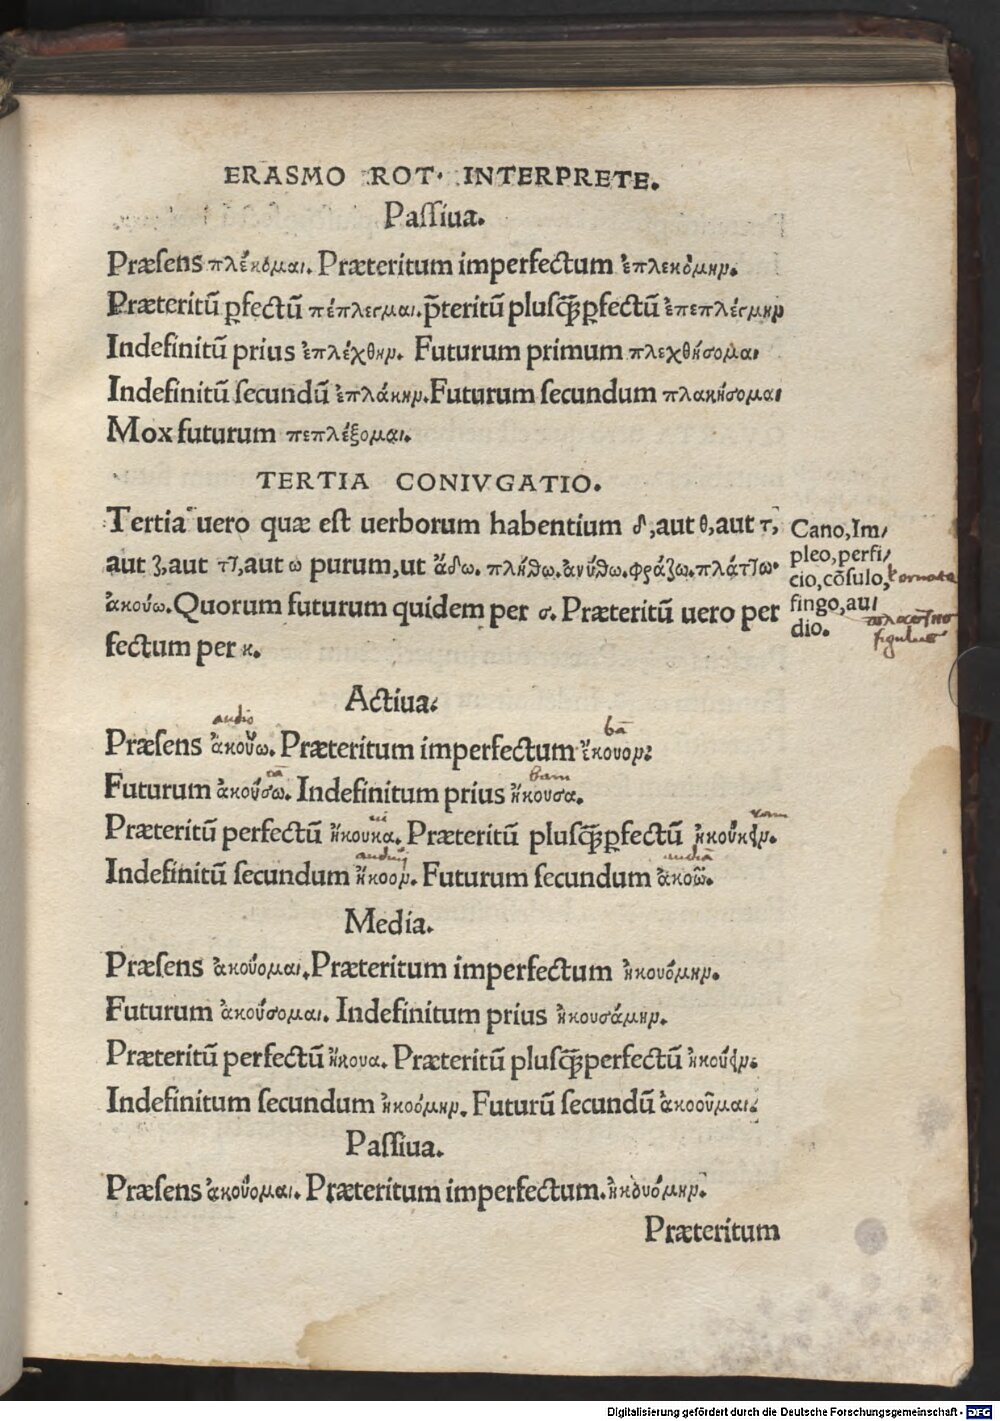 ERASMO ROT. INTERPRETE.
Paſſiua.
Præſens πλέκομαι. Præteritum imperfectum ἐπλεκόμην.
Præteritū ꝑfectū πέπλεγμαι. p̄teritū pluſꝗ̄ꝑfectū ἐπεπλέγμην
Indefinitū prius ἐπλέχθην. Futurum primum πλεχθήσομαι
Indefinitū ſecundū ἐπλάκην. Futurum ſecundum πλακήσομαι
Mox futurum πεπλέξομαι.
TERTIA CONIVGATIO.
Tertia uero quæ eſt uerborum habentium δ, aut θ, aut τ,
aut ζ, aut τ͂ῖ, aut ω purum, ut ἄδω. πλήθω. ἀνύθω. φράζω. πλάτ͂ῖω.
ἀκούω. Quorum futurum quidem per σ. Præteritū uero per
fectum per κ.
Cano, Im/
pleo, perfi/
cio, cōſulo,
fingo, au/
dio.
figulus
Actiua.
audio
Præſens ἀκούω. Præteritum imperfectum ἤκουον.
bā
Futurum ἀκούσω. Indefinitum prius ἤκουσα.
bam
Præteritū perfectū ἤκουκα. Præteritū pluſꝗ̄ꝑfectū ἠκούκειν.
ui
ram
Indefinitū ſecundum ἤκοον. Futurum ſecundum ἀκοῶ.
audiui
audiā
Media.
Præſens ἀκούομαι. Præteritum imperfectum ἠκουόμην.
Futurum ἀκούσομαι. Indefinitum prius ἠκουσάμην.
Præteritū perfectū ἤκουα. Præteritū pluſꝗ̄perfectū ἠκούειν.
Indefinitum ſecundum ἠκοόμην. Futurū ſecundū ἀκοοῦμαι.
Paſſiua.
Præſens ἀκούομαι. Præteritum imperfectum. ἠκουόμην.
Præteritum
Digitalisierung gefördert durch die Deutsche Forschungsgemeinschaft - DFG